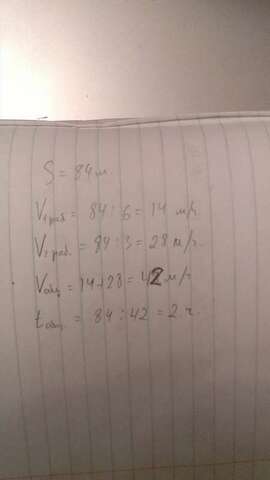 S = 84 м.
V₁ раб. = 84 : 6 = 14 м/ч
V₂ раб. = 84 : 3 = 28 м/ч.
Vобщ = 14 + 28 = 42 м/ч
tобщ. = 84 : 42 = 2 ч.